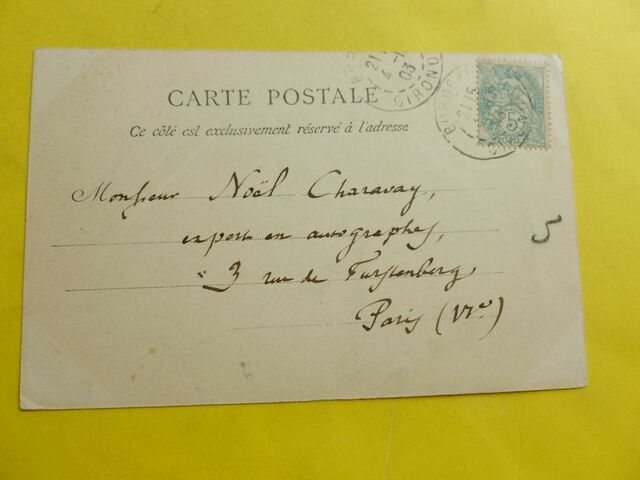 CARTE POSTALE
Ce côté est exclusivement réservé à l'adresse
Monsieur Noël Charavay,
expert en autographes,
3 rue de Furstenberg,
Paris (VIe)
5
21 15
4
03
GIRONDE
BORDEAUX
21 15
5c